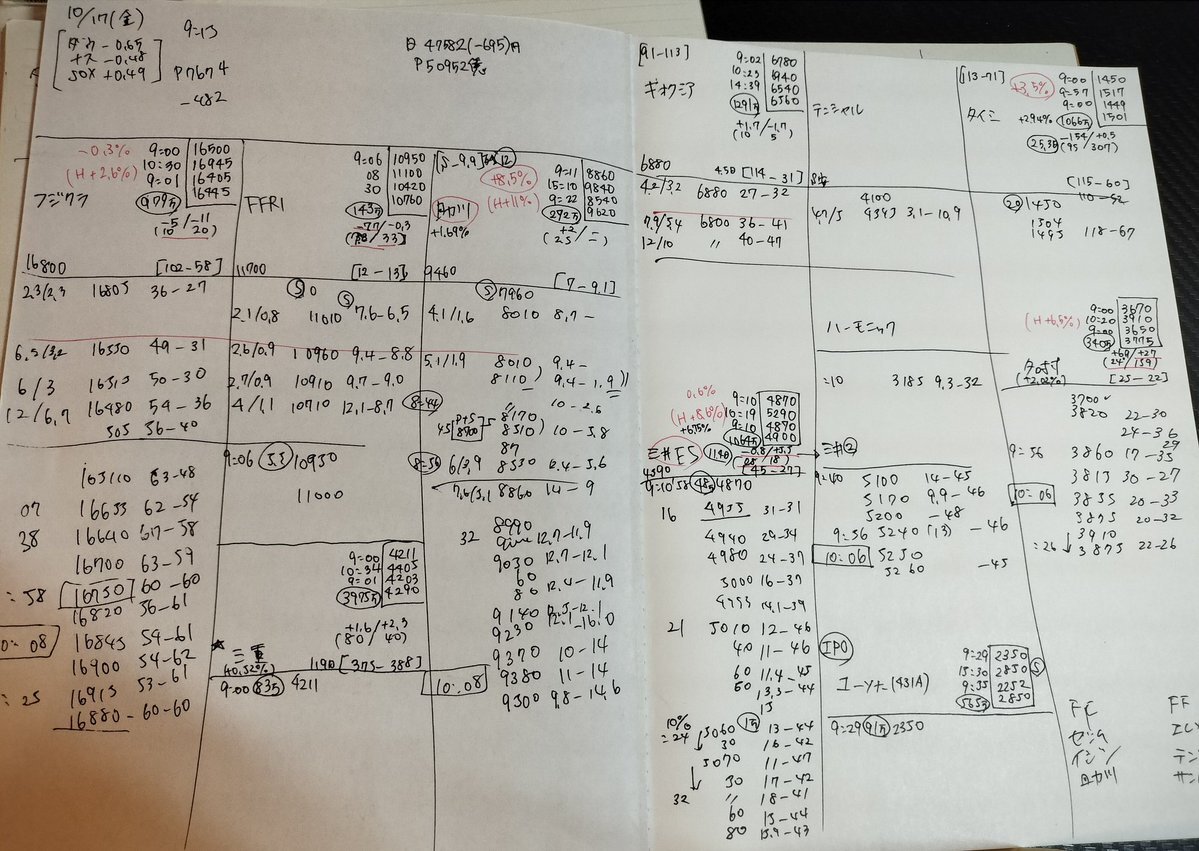 10/17(金)
9=13
ダウ -0.65
ナス -0.48
SOX +0.49
P7674
-482
日 47582(-695)円
-0.3%
(H+2.6%)
フジクラ
9=00 16500
10=30 16945
9=01 16405
16445
979万
-5/-11
(10/20)
16800 [102-58]
2.3/2.3 16805 36-27
6.5/3.2 16550 49-31
6/3 16515 50-30
12/6.7 16480 54-36
505 36-40
07 16655 62-54
38 16640 617-58
16700 63-59
=58 16750 60-60
16820 56-61
10=08 16845 54-61
16900 54-62
16915 53-61
=25
16880-60-60
FFRI
9=06 10950
08 11100
30 10420
10760
143万
-77/-0.3
11700 [12-13]
2.1/0.8 11010 7.6-6.5
2.6/0.9 10960 9.4-8.8
2.7/0.9 10910 9.7-9.0
4/1.1 10710 12.1-8.7
9=06 5.5 10950
11000
9=00 4211
10=34 4405
9=01 4203
4290
3975万
+1.6/+2.3
(80/40)
★三重
+0.52% 1190 [375-388]
9=00 835 4211
[5-9.9] 12
+8.5%
(H+11%)
+1.69%
9=11 8860
15=10 9840
9=22 8540
9620
292万
+2/=
9460 [7-9.1]
S 7960
4.1/1.6 8010 8.7-
5.1/1.9 8010 9.4-
8110 9.4-1.9
8=44 8170 10-2.6
45 P+S 8500 8510 10-3.8
8=56 6/3.9 8530 12.4-5.6
7.6/5.1 8860 14-9
32 8990
9030 12.7-12.1
60 12.4-11.9
80
9140 12.5-12.1
9230 12.1-16.0
9370 10-14
10=08 9380 11-14
9300 9.8-14.6
[91-113]
キオクシア
9=02 6780
10=23 6940
14=39 6540
6560
1291万
+1.7/-1.7
(10/5)
6880 450 [114-31]
4.2/3.2 6880 27-32
7.9/5.4 6800 36-41
12/10 〃 40-47
0.6%
(H+8.6%)
+6.75%
9=10 4870
10=19 5290
9=10 4790
4900
1064万
三井ES
1140
-0.8/+3.5
(28/18)
4590 [45-27]
9=10 58 485 4870
16 4955 31-31
4940 29-34
4980 24-37
5000 16-37
4955 14.1-39
21 5010 12-46
40 11-46
60 11.4-45
50 13.3-44
15
10%
=24 5060 1万 13-44
30 16-42
5070 11-47
30 17-42
32 〃 18-41
60 15-44
80 15.9-43
テンシャル
4100
4.7/5 9393 3.1-10.9
ハーモニック
=10 3185 9.3-32
三井②
9=40 5100 14-45
5170 9.9-46
5200 -48
9=56 5240 (13) -46
10=06 5250
5260 -45
IPO
ユーソナー(431A)
9=29 2350
15=30 2850
9=35 2252
2850
565万
9=29 91万 2350
[13-71]
+3.5%
タイミー
+2.94%
9=00 1450
9=57 1517
9=00 1449
1501
1066万
25.3万
-154/+0.5
(95/307)
[115-60]
110-52
20 1450
1504
1495 118-67
(H+6.5%)
9=00 3670
10=20 3910
9=00 3650
3775
340万
+69/+27
(24/159)
(+2.02%) [25-22]
3700
3820 22-30
24-36
29
9=56 3860 17-35
3815 30-27
10=06 3835 20-33
3875 20-32
3910
=26 3875 22-26